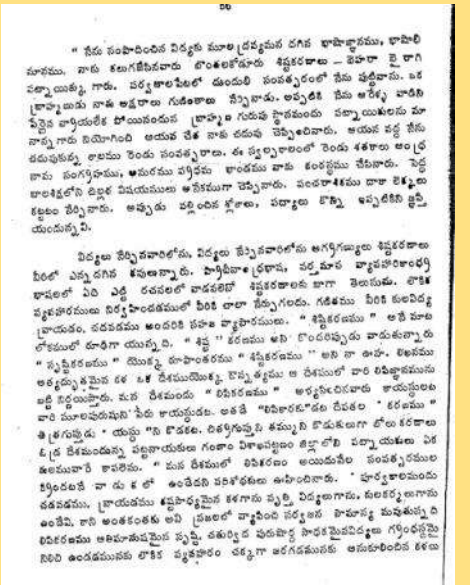 56
" నేను సంపాదించిన విద్యకు మూల ద్రవ్యమన దగిన భాషాజ్ఞానము, భాషాభి
మానము, నాకు కలుగజేసినవారు బొంతలకోడూరు శిష్టకరణాలు - బెహరా బైరాగి
పట్నాయిక్కు గారు. పర్వతాలపేటలో దుందుభి సంవత్సరంలో నేను పుట్టినాను. ఒక
బ్రాహ్మణుడు నాకు అక్షరాలు గుడింతాలు నేర్పినాడు. అప్పటికి నేను ఆరేళ్ళ వాడిని
పేరైన వ్రాయలేక పోయినందున బ్రాహ్మణ గురువు స్థానమందు పట్నాయికులను మా
నాన్న గారు నియోగించి ఆయన చేత నాకు చదువు చెప్పించినారు. ఆయన వద్ద నేను
చదువుకున్న కాలము రెండు సంవత్సరాలు. ఈ స్వల్పకాలంలో రెండు శతకాలు ఆంధ్ర
నామ సంగ్రహము, అమరము ప్రథమ కాండము నాకు కంఠస్థము చేసినారు. పెద్ద
బాలశిక్షలోని విషయములు అనేకముగా చెప్పినారు. పంచరాశికము దాకా లెక్కలు
కట్టటం నేర్పినారు. అప్పుడు వల్లించిన శ్లోకాలు, పద్యాలు కొన్ని ఇప్పటికిని జ్ఞప్తి
యందున్నవి.
విద్యలు నేర్చినవారిలోను, విద్యలు నేర్పినవారిలోను అగ్రగణ్యులు శిష్టకరణాలు
వీరిలో ఎన్నదగిన కవులున్నారు. ప్రాచీనాంధ్రభాష, వర్తమాన వ్యావహారికాంధ్ర
భాషలలో ఏది ఎట్టి రచనలలో వాడవలెనో శిష్టకరణాలకు బాగా తెలుసును. లౌకిక
వ్యవహారములు నిర్వహించడములో వీరికి చాలా నేర్పుగలదు. గణితము వీరికి కులవిద్య
వ్రాయడం, చదవడము అందరికి సహజ వ్యాపారములు. " శిష్టకరణము " అనే మాట
లోకములో రూఢిగా యున్నది. " శిష్ట " కరణము అని కొందరిప్పుడు వాడుతున్నారు
" సృష్టికరణము " యొక్క రూపాంతరము " శిష్టికరణము " అని నా ఊహ. లిఖనము
అత్యద్భుతమైన కళ ఒక దేశముయొక్క ఔన్నత్యము ఆ దేశములో వారి లిపిజ్ఞానమును
బట్టి నిర్ణయిస్తారు. మన దేశమందు " లిపికరణము " అభ్యసించినవారు కాయస్థులట
వారి మూలపురుషుని పేరు కాయస్థుడట. అతడే "లిపికారకు"డట దేవతల " కరణము "
చిత్రగుప్తుడు " యస్థు "ని కొడుకట. చిత్రగుప్తుని తమ్ముని కొడుకులుగా బోలు కరణాలు
ఓఢ్ర దేశమందున్న పట్టనాయకులు గంజాం విశాఖపట్టణం జిల్లాలోని పట్నాయకులు ఏక
కులమువారే కావలెను. " మన దేశములో లిపికరణం అయిదువేల సంవత్సరముల
క్రిందటనే వాడుకలో ఉండేదని పరిశోధకులు ఊహించినారు. " పూర్వకాలమందు
చదవడము, వ్రాయడము కష్టసాధ్యమైన కళగాను వృత్తి విద్యలుగాను, కులకర్మలుగాను
ఉండేవి, కాని అంతకంతకు అవి ప్రజలలో వ్యాపించి సర్వజన సామాన్య మవుతున్నది
లిపికరణము అతిమానుషమైన సృష్టి. చతుర్విధ పురుషార్థ సాధకమైనవిద్యలు గ్రంథస్థమై
నిలిచి ఉండడమునకు లౌకిక వ్యవహారం చక్కగా జరగడమునకు అనుకూలించిన కళలు